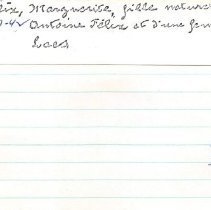 lix, Marguerite, fille nature
-4 Antoine Félix et d'une fem